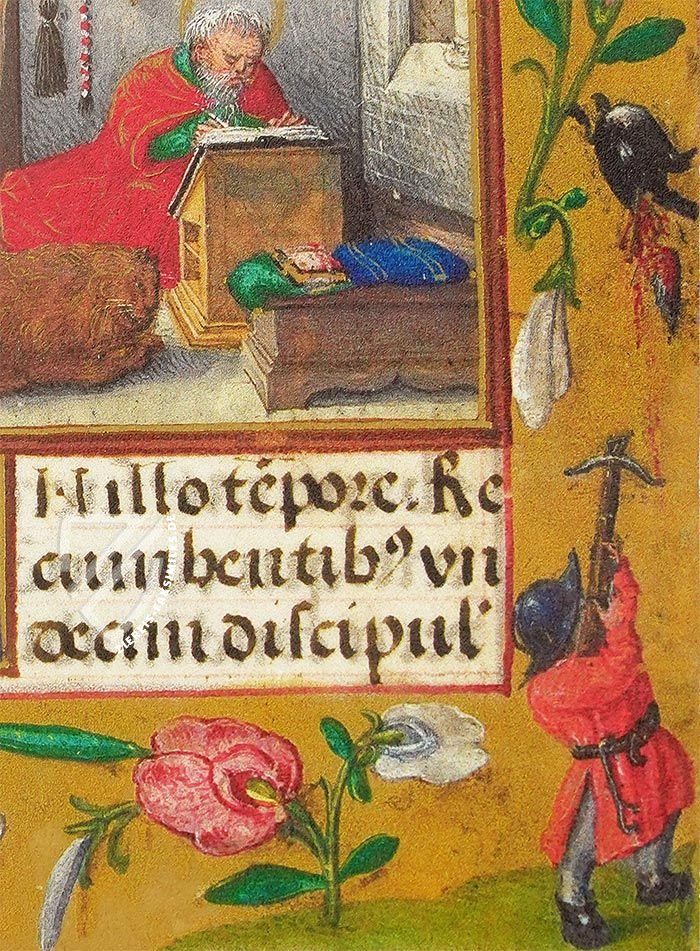 N illo tẽpore. Re
cumbentibꝰ vn
decim discipul'